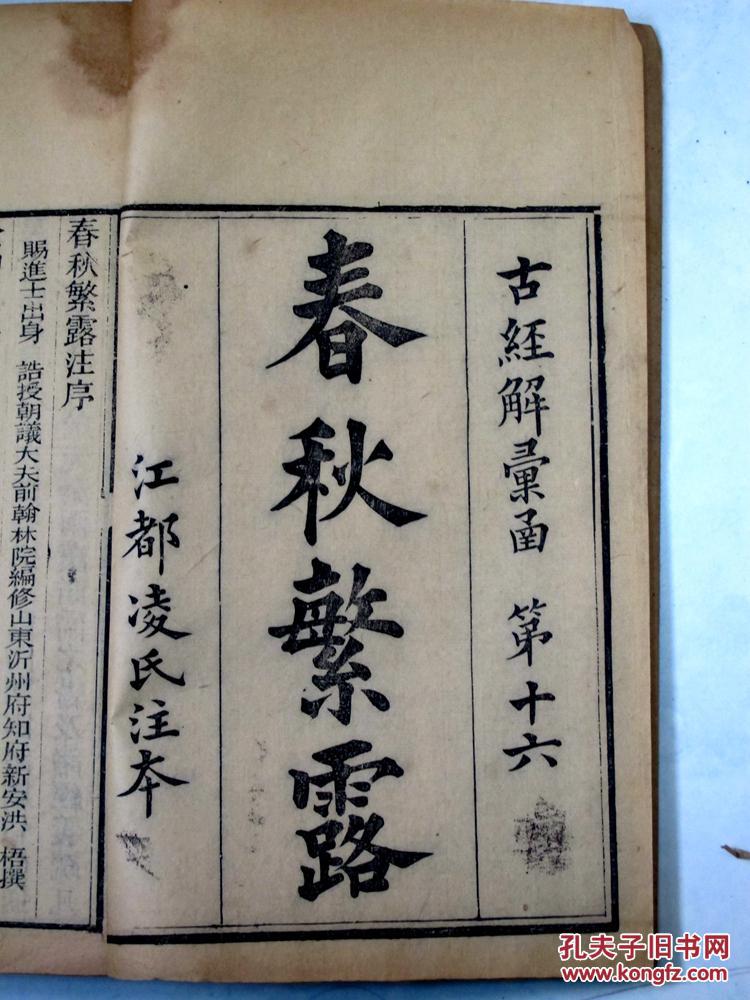 古經解彙函　第十六
春秋繁露
江都凌氏注本
春秋繁露注序
賜進士出身　誥授朝議大夫前翰林院編修山東沂州府知府新安洪　梧撰
孔夫子旧书网
www.kongfz.com